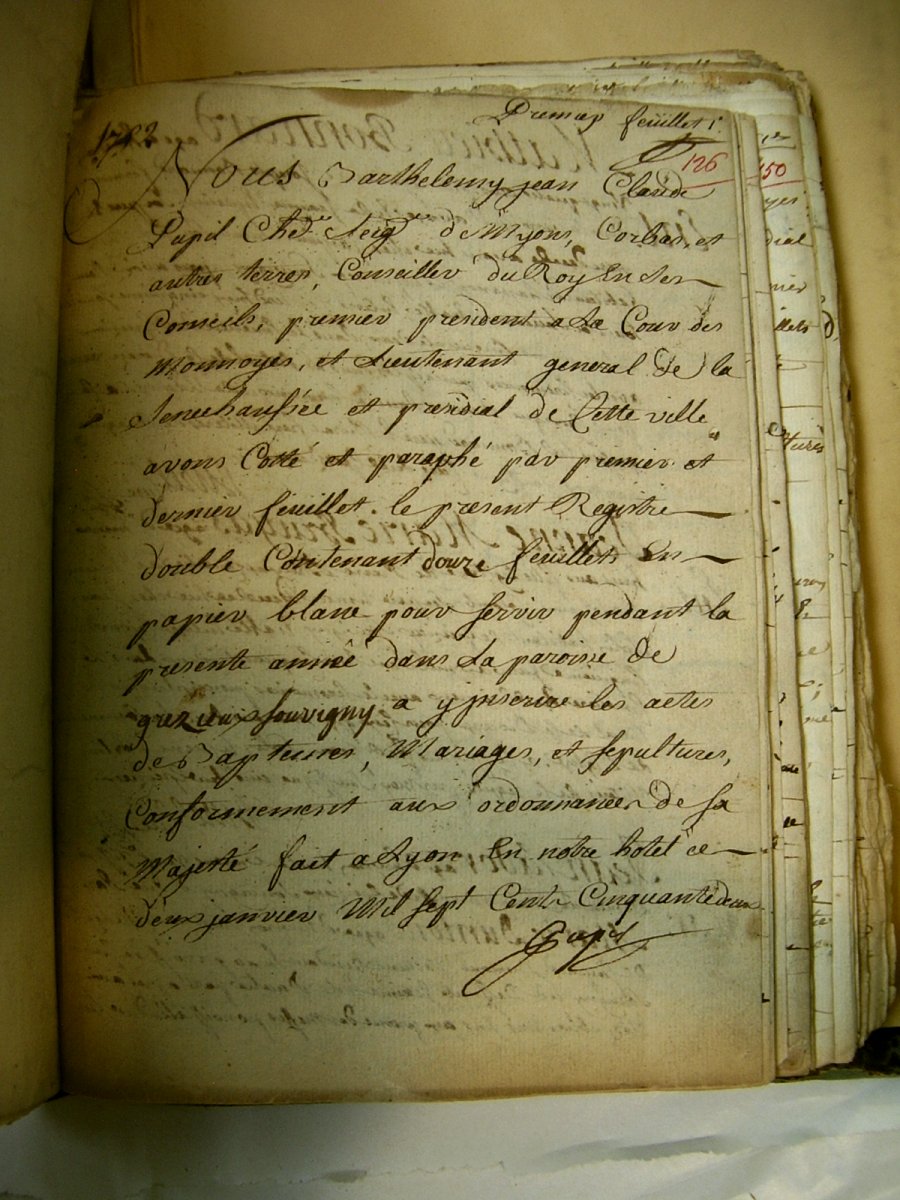 1752
Premier feuillet 1.
126
Nous Barthelemy jean Claude
Pupil Che.r Seig.r de Myons, Corbas, et
autres terres, Conseiller du Roy En Ses
Conseils, premier president a La Cour des
Monnoyes, et Lieutenant general de la
Senechaussée et presidial de Cette ville
avons Cotté et paraphé par premier et
dernier feuillet. le present Registre
double Contenant douze feuillets En
papier blanc pour servir pendant la
presente année dans La paroisse de
grezieux souvigny a y jnscrire les actes
de Baptemes, Mariages, et sepultures,
Conformement aux ordonnances de sa
Majesté fait a Lyon En notre hotel ce
deux janvier Mil sept Cents Cinquante deux
Pupil
150